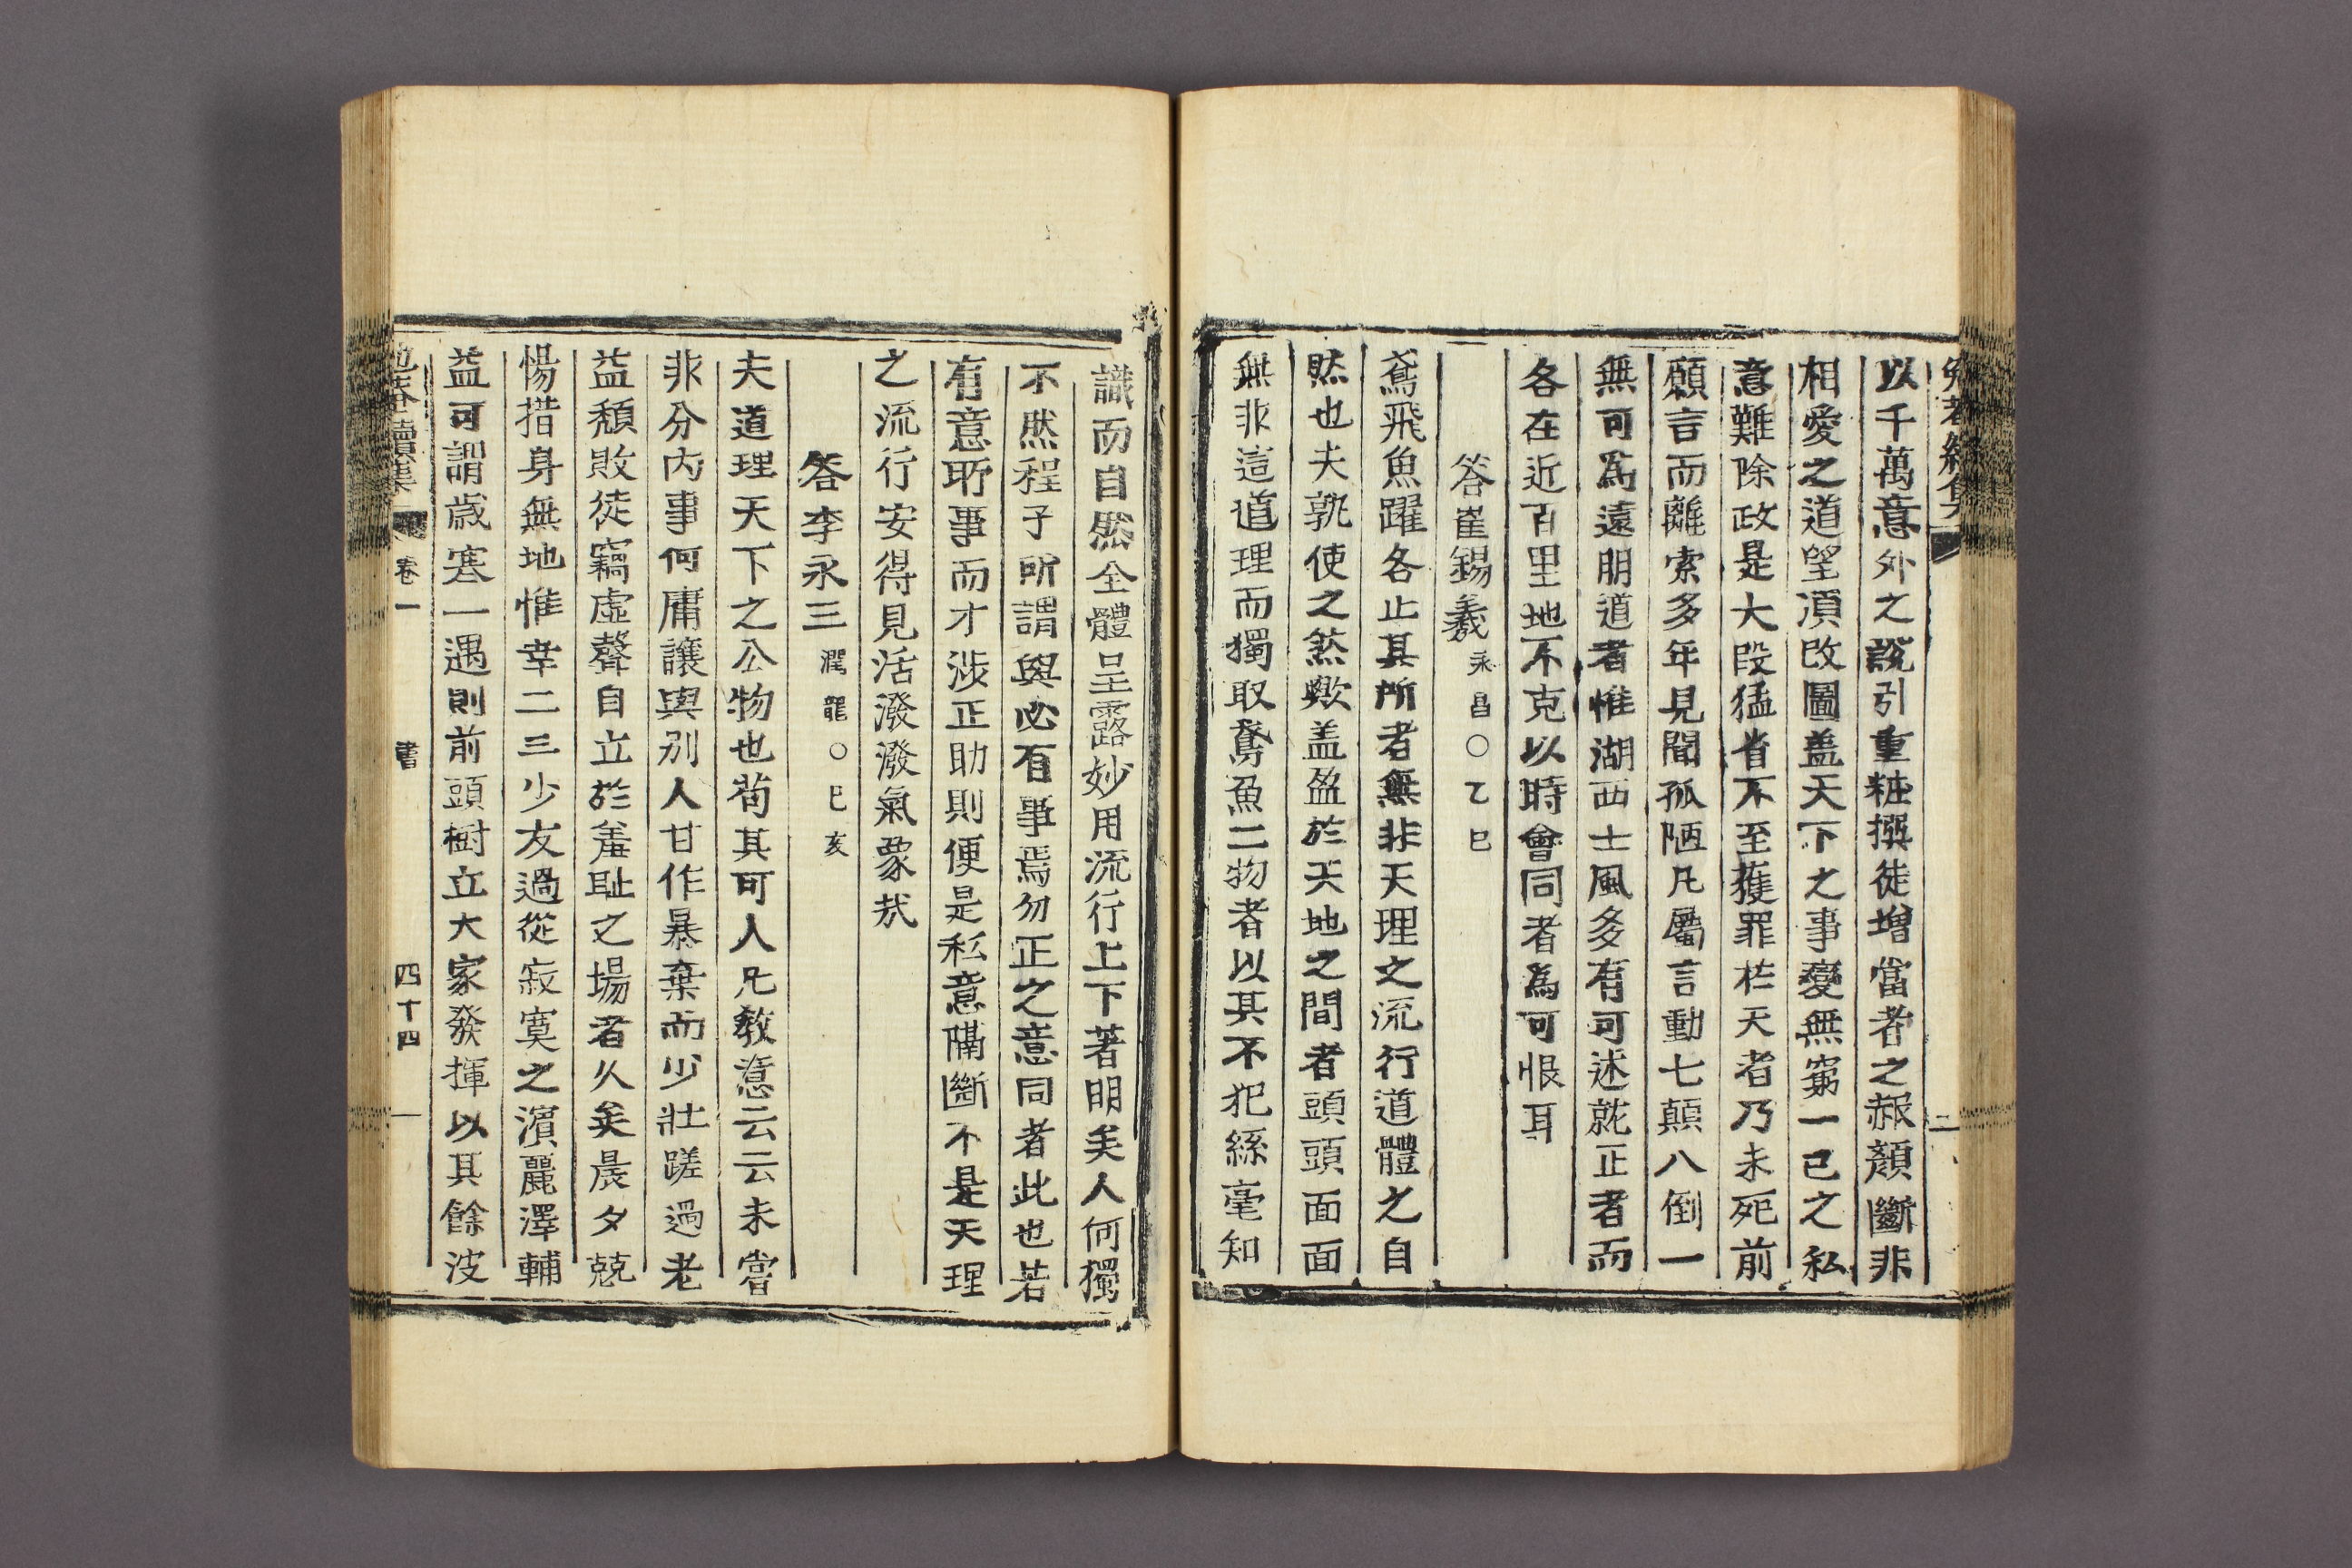 以千萬意外之說引重粧撰徒增當者之赧顏斷非
相愛之道望湏改圖盖天下之事變無窮一己之私
意難除政是大段猛省不至獲罪於天者乃未死前
願言而離索多年見聞孤陋凡屬言動七顛八倒一
無可爲遠朋道者惟湖西士風多有可述就正者而
各在近百里地不克以時會同者爲可恨耳
答崔錫羲 永昌○乙巳
鳶飛魚躍各止其所者無非天理之流行道體之自
然也夫孰使之然歟盖盈於天地之間者頭頭面面
無非這道理而獨取鳶魚二物者以其不犯絲毫知
識而自然全體呈露妙用流行上下著明矣人何獨
不然程子所謂與必有事焉勿正之意同者此也若
有意所事而才涉正助則便是私意隔斷不是天理
之流行安得見活潑潑氣象哉
答李永三 潤龍○己亥
夫道理天下之公物也苟其可人凡敎意云云未嘗
非分內事何庸讓與別人甘作暴棄而少壯蹉過老
益頹敗徒竊虛聲自立於羞耻之場者久矣晨夕兢
惕措身無地惟幸二三少友過從寂寞之濱麗澤輔
益可謂歲寒一遇則前頭樹立大家發揮以其餘波
續集 卷一 書 四十四